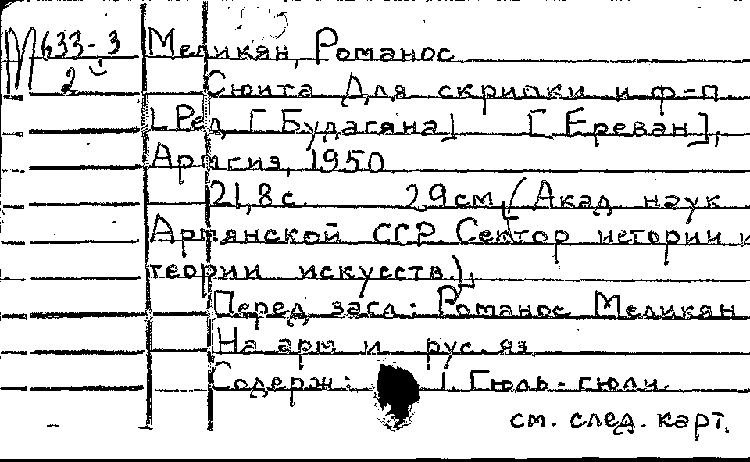 М 633-3 Меликян, Романос
2 Сюита Для скрипки и ф-п.
[Ред. Г Будагяна] [Ереван],
Армгиз, 1950
21,8 с. 29 см, (Акад. наук
Армянской ССР. Сектор истории и
теории искусств.),
Перед загл.: Романос Меликян
На арм и рус. яз
Содерж: 1. Гюль-гюли.
см. след. карт.